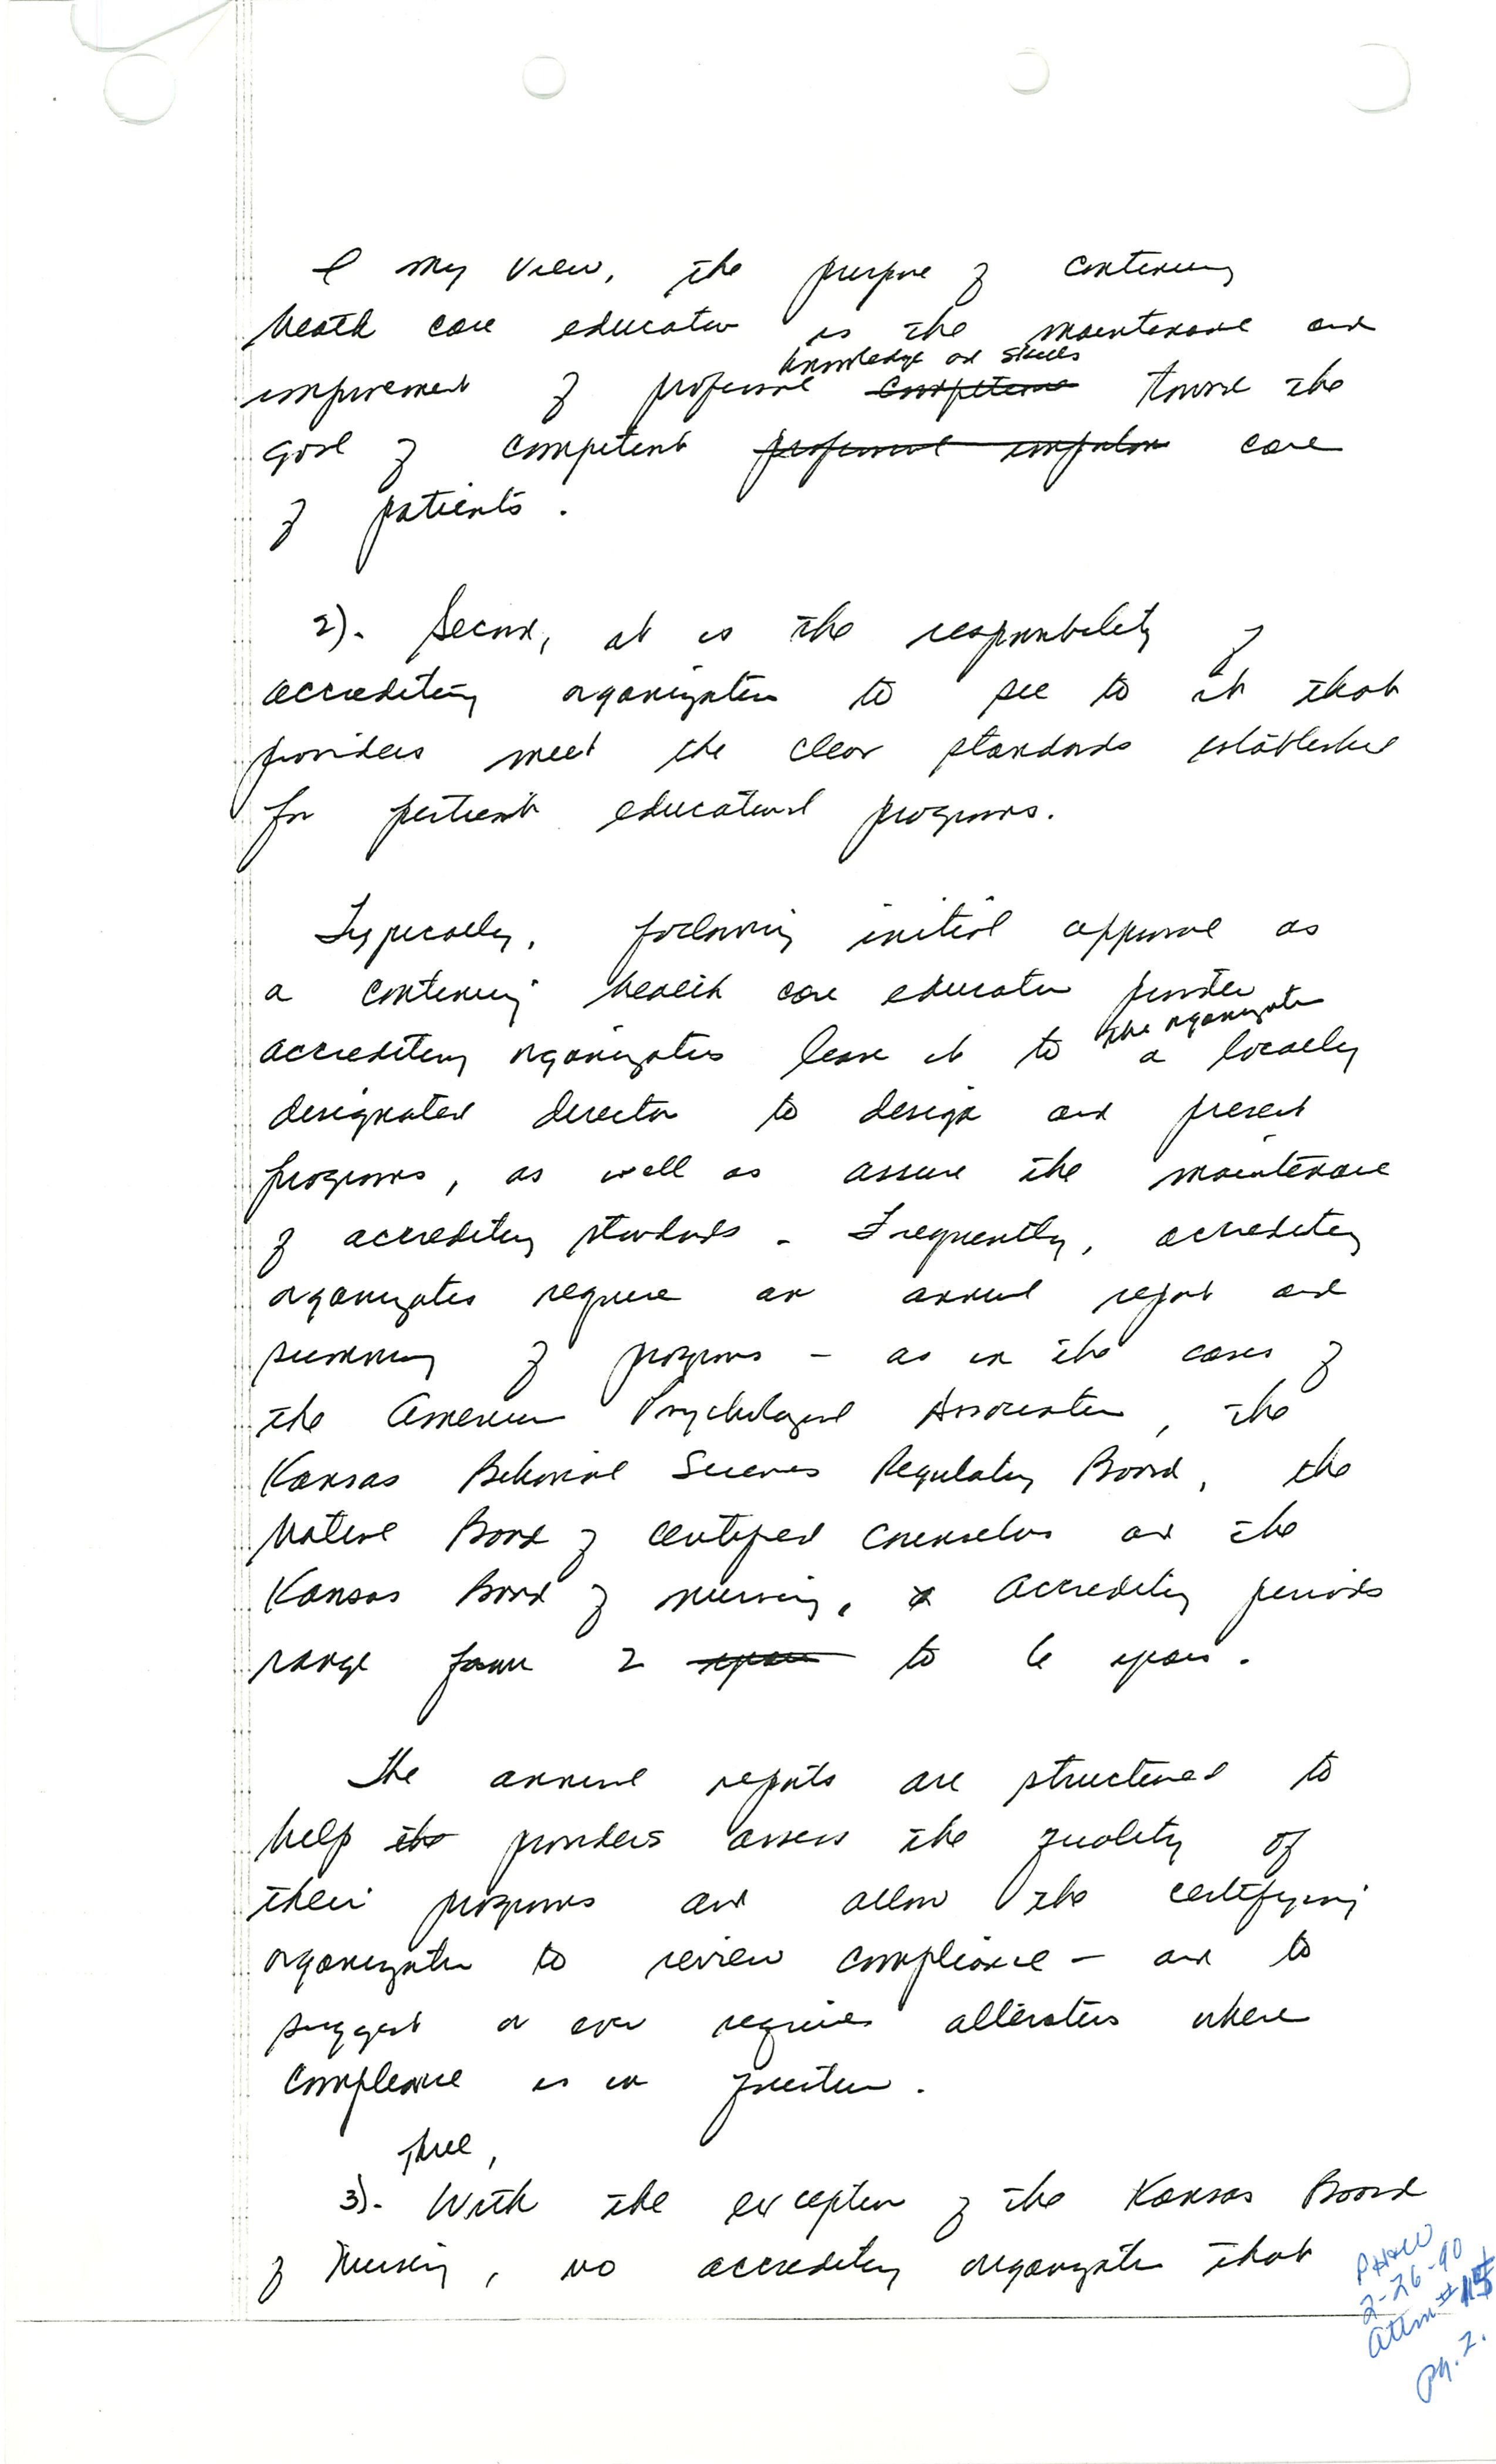 In my view, the purpose of continuing
health care education is the maintenance and
knowledge and skills
improvement of professional competence toward the
goal of competent professional care
of patients.
2). Second, it is the responsibility of
accrediting organization to see to it that
providers meet the clear standards established
for pertinent educational programs.
Typically, following initial approval as
a continuing health care education provider
the organization
accrediting organizations leave it to a locally
designated director to design and present
programs, as well as assure the maintenance
of accrediting standards. Frequently, accrediting
organizations require an annual report and
summary of programs - as in the cases of
the American Psychological Association, the
Kansas Behavioral Sciences Regulatory Board, the
National Board of Certified Counselors and the
Kansas Board of Nursing. Accrediting periods
range from 2 years to 6 years.
The annual reports are structured to
help the providers assess the quality of
their programs and allow the certifying
organization to review compliance - and to
suggest or even require alterations where
compliance is in question.
Three,
3). With the exception of the Kansas Board
of Nursing, no accrediting organization that
PH&W
2-26-90
Attm #
pg. 2.